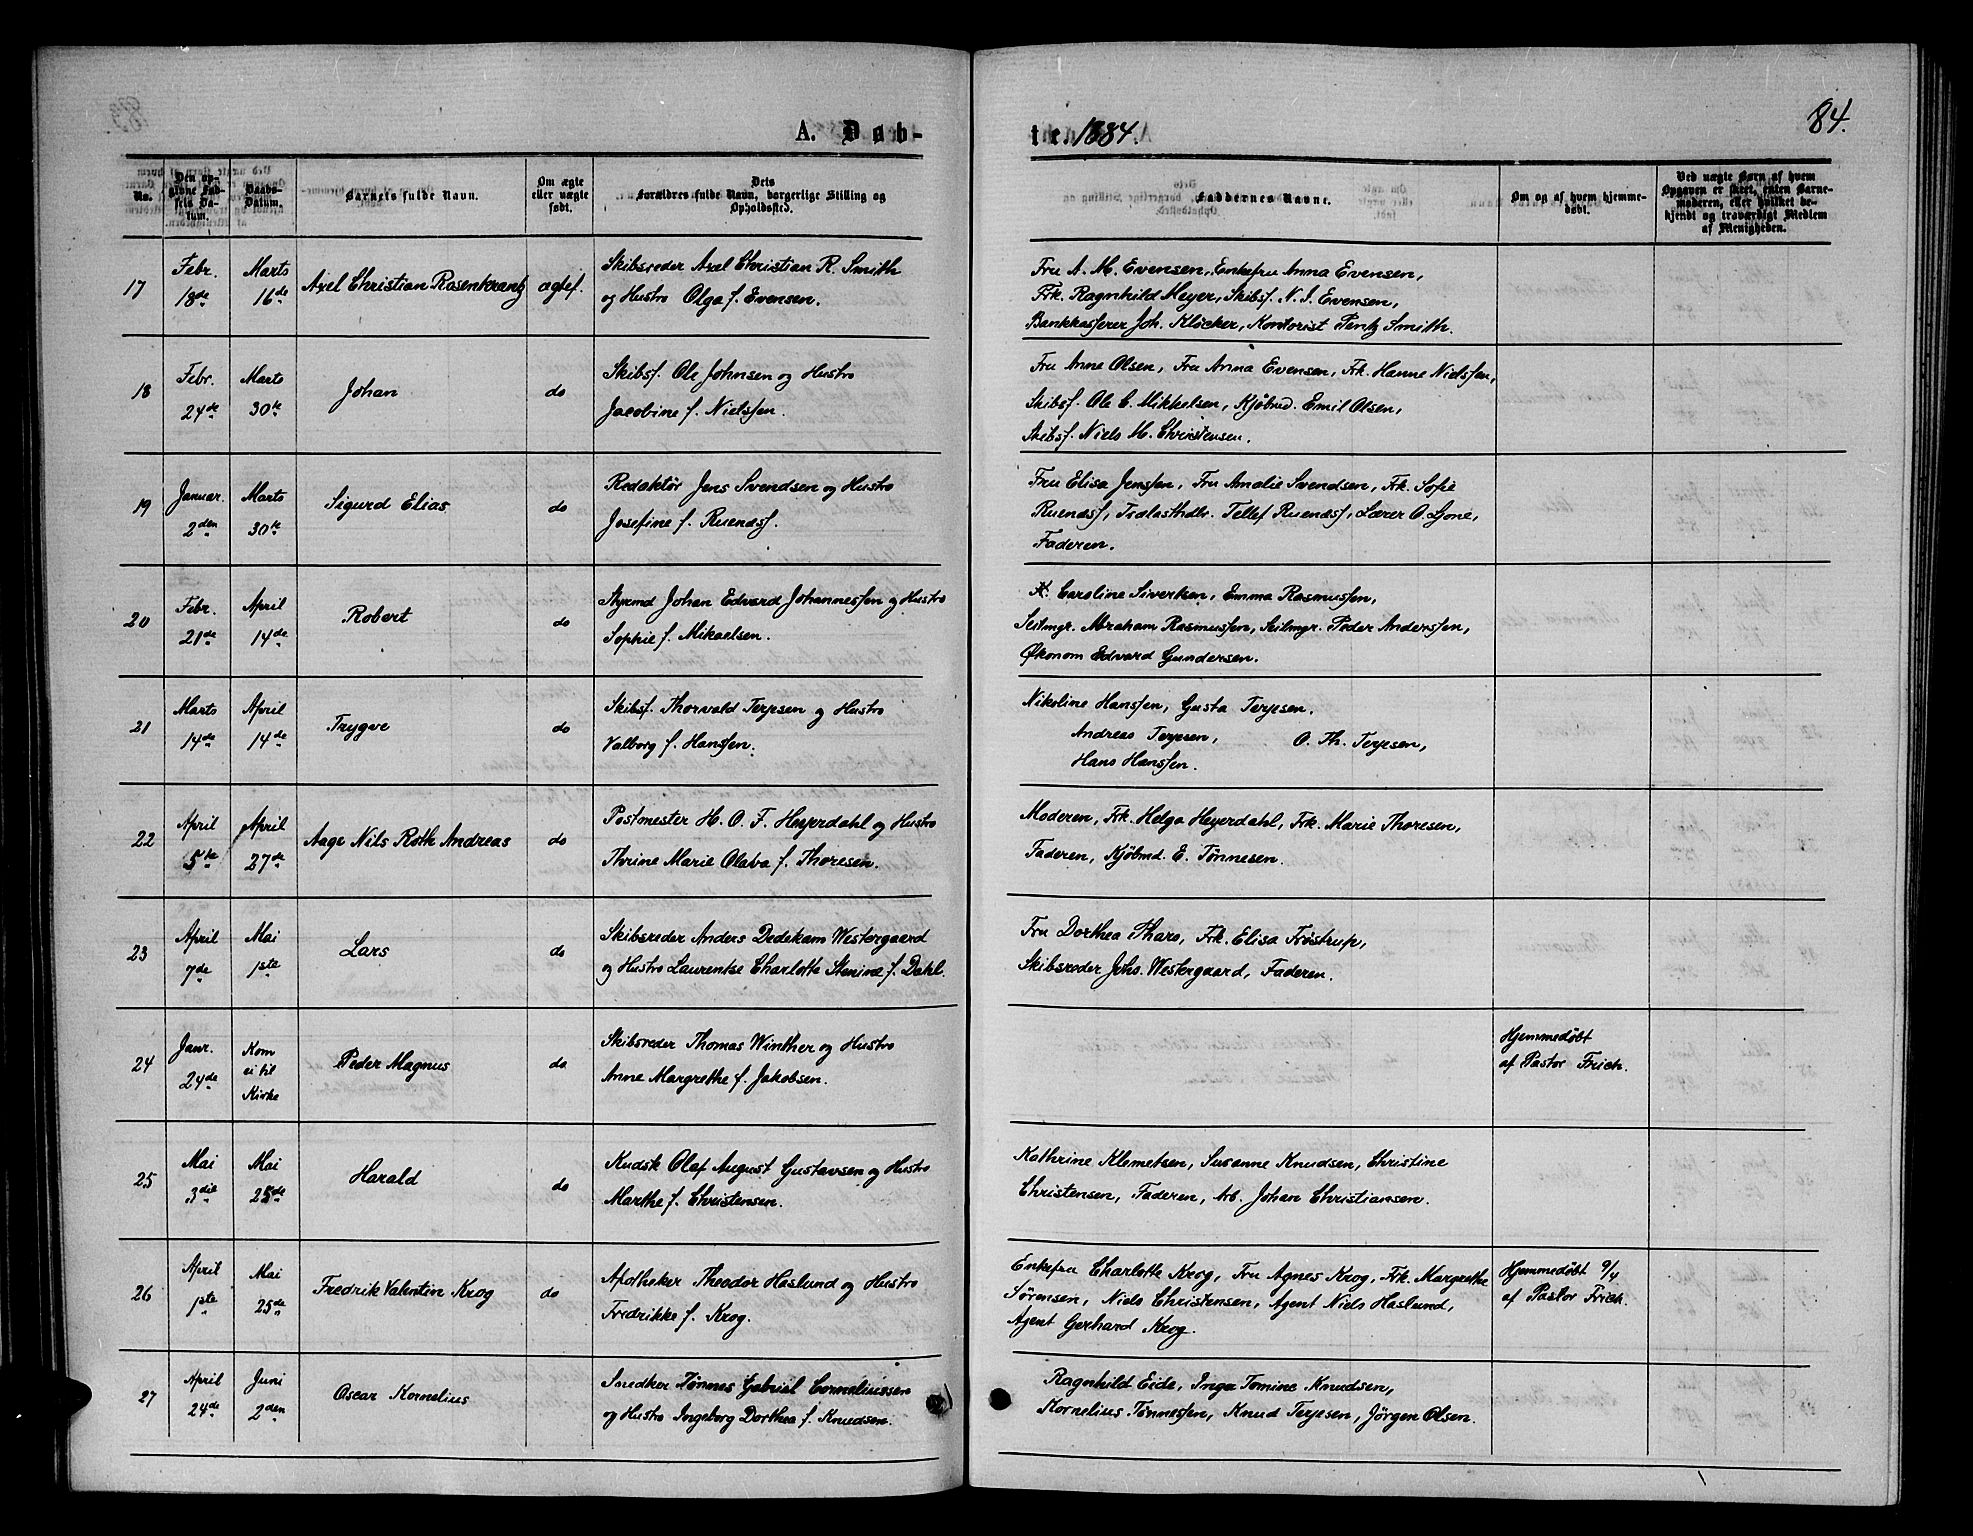 A. Døb-
te. 1884.
84.
No.
Den opgivne Fødsels Datum.
Daabs-Datum.
Barnets fulde Navn.
Om ægte eller uægte født.
Dets Forældres fulde Navn, borgerlige Stilling og Opholdssted.
Faddernes Navne.
Om og af hvem hjemmedøbt.
Ved uægte Børn af hvem Opgaven er skeet, enten Barnemoderen, eller hvilket bekjendt og troværdigt Medlem af Menigheden.
17
Febr. 18de
Marts 16de
Axel Christian Rosenkrantz
ægtef.
Skibsreder Axel Christian R. Smith
og Hustro Olga f. Evensen.
Fru A. M. Evensen, Enkefru Anna Evensen,
Frk. Ragnhild Meyer, Skibsf. N. S. Evensen,
Bankkasserer Joh. Kløcker, Kontorist Pentz Smith.
18
Febr. 24de
Marts 30te
Johan
do
Skibsf. Ole Johnsen og Hustro
Jacobine f. Nielssen.
Fru Anne Olsen, Fru Anna Evensen, Frk. Hanne Nielssen,
Skibsf. Ole C. Mikkelsen, Kjøbmd. Emil Olsen,
Skibsf. Niels M. Christensen.
19
Januar. 2den
Marts 30te
Sigurd Elias
do
Redaktør Jens Svendsen og Hustro
Josefine f. Ruenæsf.
Fru Elisa Jenssen, Fru Amalie Svendsen, Frk. Sofie
Ruenæsf, Tellef Ruenæsf, Lærer O. Ljone,
Faderen.
20
Febr. 21de
April 14de
Robert
do
Styrmd Johan Edvard Johannessen og Hustro
Sophie f. Mikaelsen.
Caroline Sivertsen, Emma Rasmussen,
Seilmgr. Abraham Rasmussen, Seilmgr. Peder Anderssen,
Økonom Edvard Gundersen.
21
Marts 14de
April 14de
Trygve
do
Skibsf. Thorvald Terjesen og Hustro
Valborg f. Hanssen.
Nikoline Hanssen, Gusta Terjesen.
Andreas Terjesen, O. Th. Terjesen,
Hans Hanssen.
22
April 5te
April 27de
Aage Nils Roth Andreas
do
Postmester H. O. F. Heyerdahl og Hustro
Thrine Marie Olava f. Thoresen.
Moderen, Frk. Helga Heyerdahl, Frk. Marie Thoresen,
Faderen, Kjøbmd. E. Tønnesen.
23
April 7de
Mai 1ste
Lars
do
Skibsreder Anders Dedekam Westergaard
og Hustro Laurentse Charlotte Stenine f. Dahl.
Fru Dorthea Thars, Frk. Elisa Trøstrup,
Skibsreder Johs. Westergaard, Faderen.
24
Janr. 24de
Kom ei til Kirke
Peder Magnus
do
Skibsreder Thomas Winther og Hustro
Anne Margrethe f. Jakobsen.
Hjemmedøbt
af Pastor Frich.
25
Mai 3die
Mai 25de
Harald
do
Kudsk Olaf August Gustavsen og Hustro
Marthe f. Christensen.
Kathrine Klemetsen, Susanne Knudsen, Christine
Christensen, Faderen, Arb. Johan Christiansen.
26
April 1ste
Mai 25de
Fredrik Valentin Krog
do
Apotheker Theodor Haslund og Hustro
Fredrikke f. Krog.
Enkefru Charlotte Krog, Fru Agnes Krog, Frk. Margrethe
Sørensen, Niels Christensen, Agent Niels Haslund,
Agent Gerhard Krog.
Hjemmedøbt 9/4
af Pastor Frich.
27
April 24de
Juni 2den
Oscar Kornelius
Snedker Tønnes Gabriel Corneliussen
og Hustro Ingeborg Dorthea f. Knudsen.
Ragnhild Eide, Inga Tomine Knudsen,
Kornelius Tønnessen, Knud Terjesen, Jörgen Olsen.